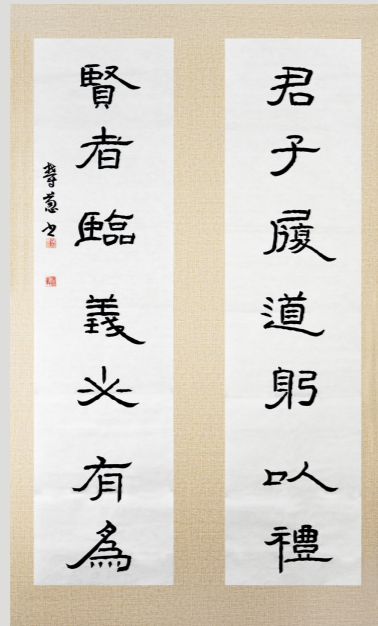 君子履道躬以禮
賢者臨義必有為